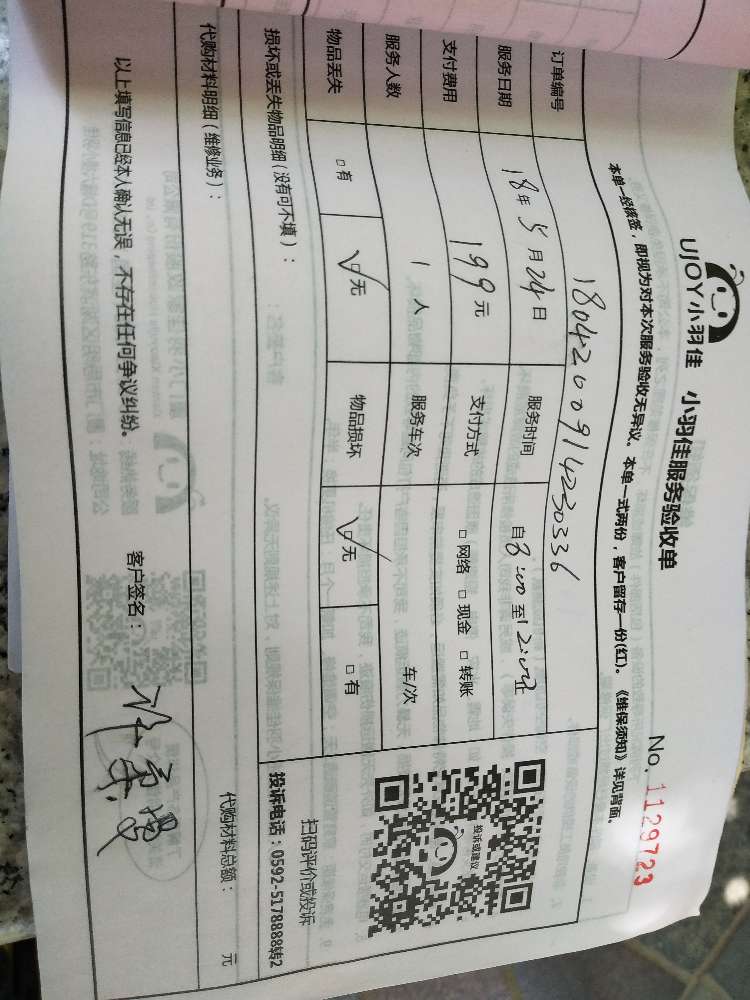 UJOY小羽佳 小羽佳服务验收单 No. 1129723
本单一经核签，即视为对本次服务验收无异议。本单一式两份，客户留存一份(红)。《维保须知》详见背面。
订单编号 180420091423033６
服务日期 18年5月24日 服务时间 自8:00至12:00止
支付费用 199元 支付方式 □网络 □现金 □转账
服务人数 1人 服务车次 车/次
物品丢失 □有 □无 物品损坏 □无 □有
投诉或建议
扫码评价或投诉
投诉电话：0592-5178888转2
损坏或丢失物品明细（没有可不填）：
代购材料明细（维修业务）： 代购材料总额： 元
以上填写信息已经本人确认无误，不存在任何争议纠纷。 客户签名：